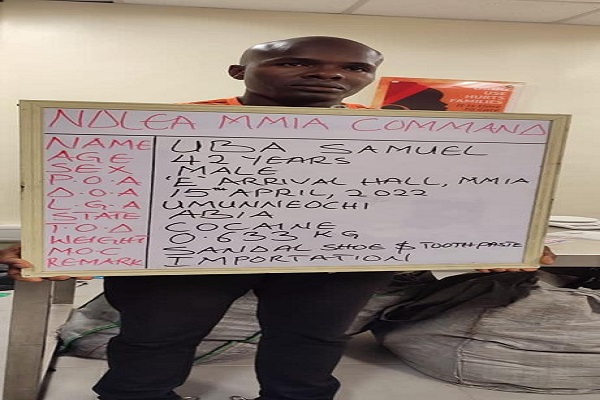 USE
HURTS
FAMILIES
NDLEA MMIA COMMAND
NAME UBA SAMUEL
AGE 42 YEARS
SEX MALE
P.O.A 'E' ARRIVAL HALL, MMIA
D.O.A 15TH APRIL, 2022
L.G.A UMUNNEOCHI
STATE ABIA
T.O.D COCAINE
WEIGHT 0.633 KG
M.O.C SANDAL SHOE & TOOTHPASTE
REMARK IMPORTATION